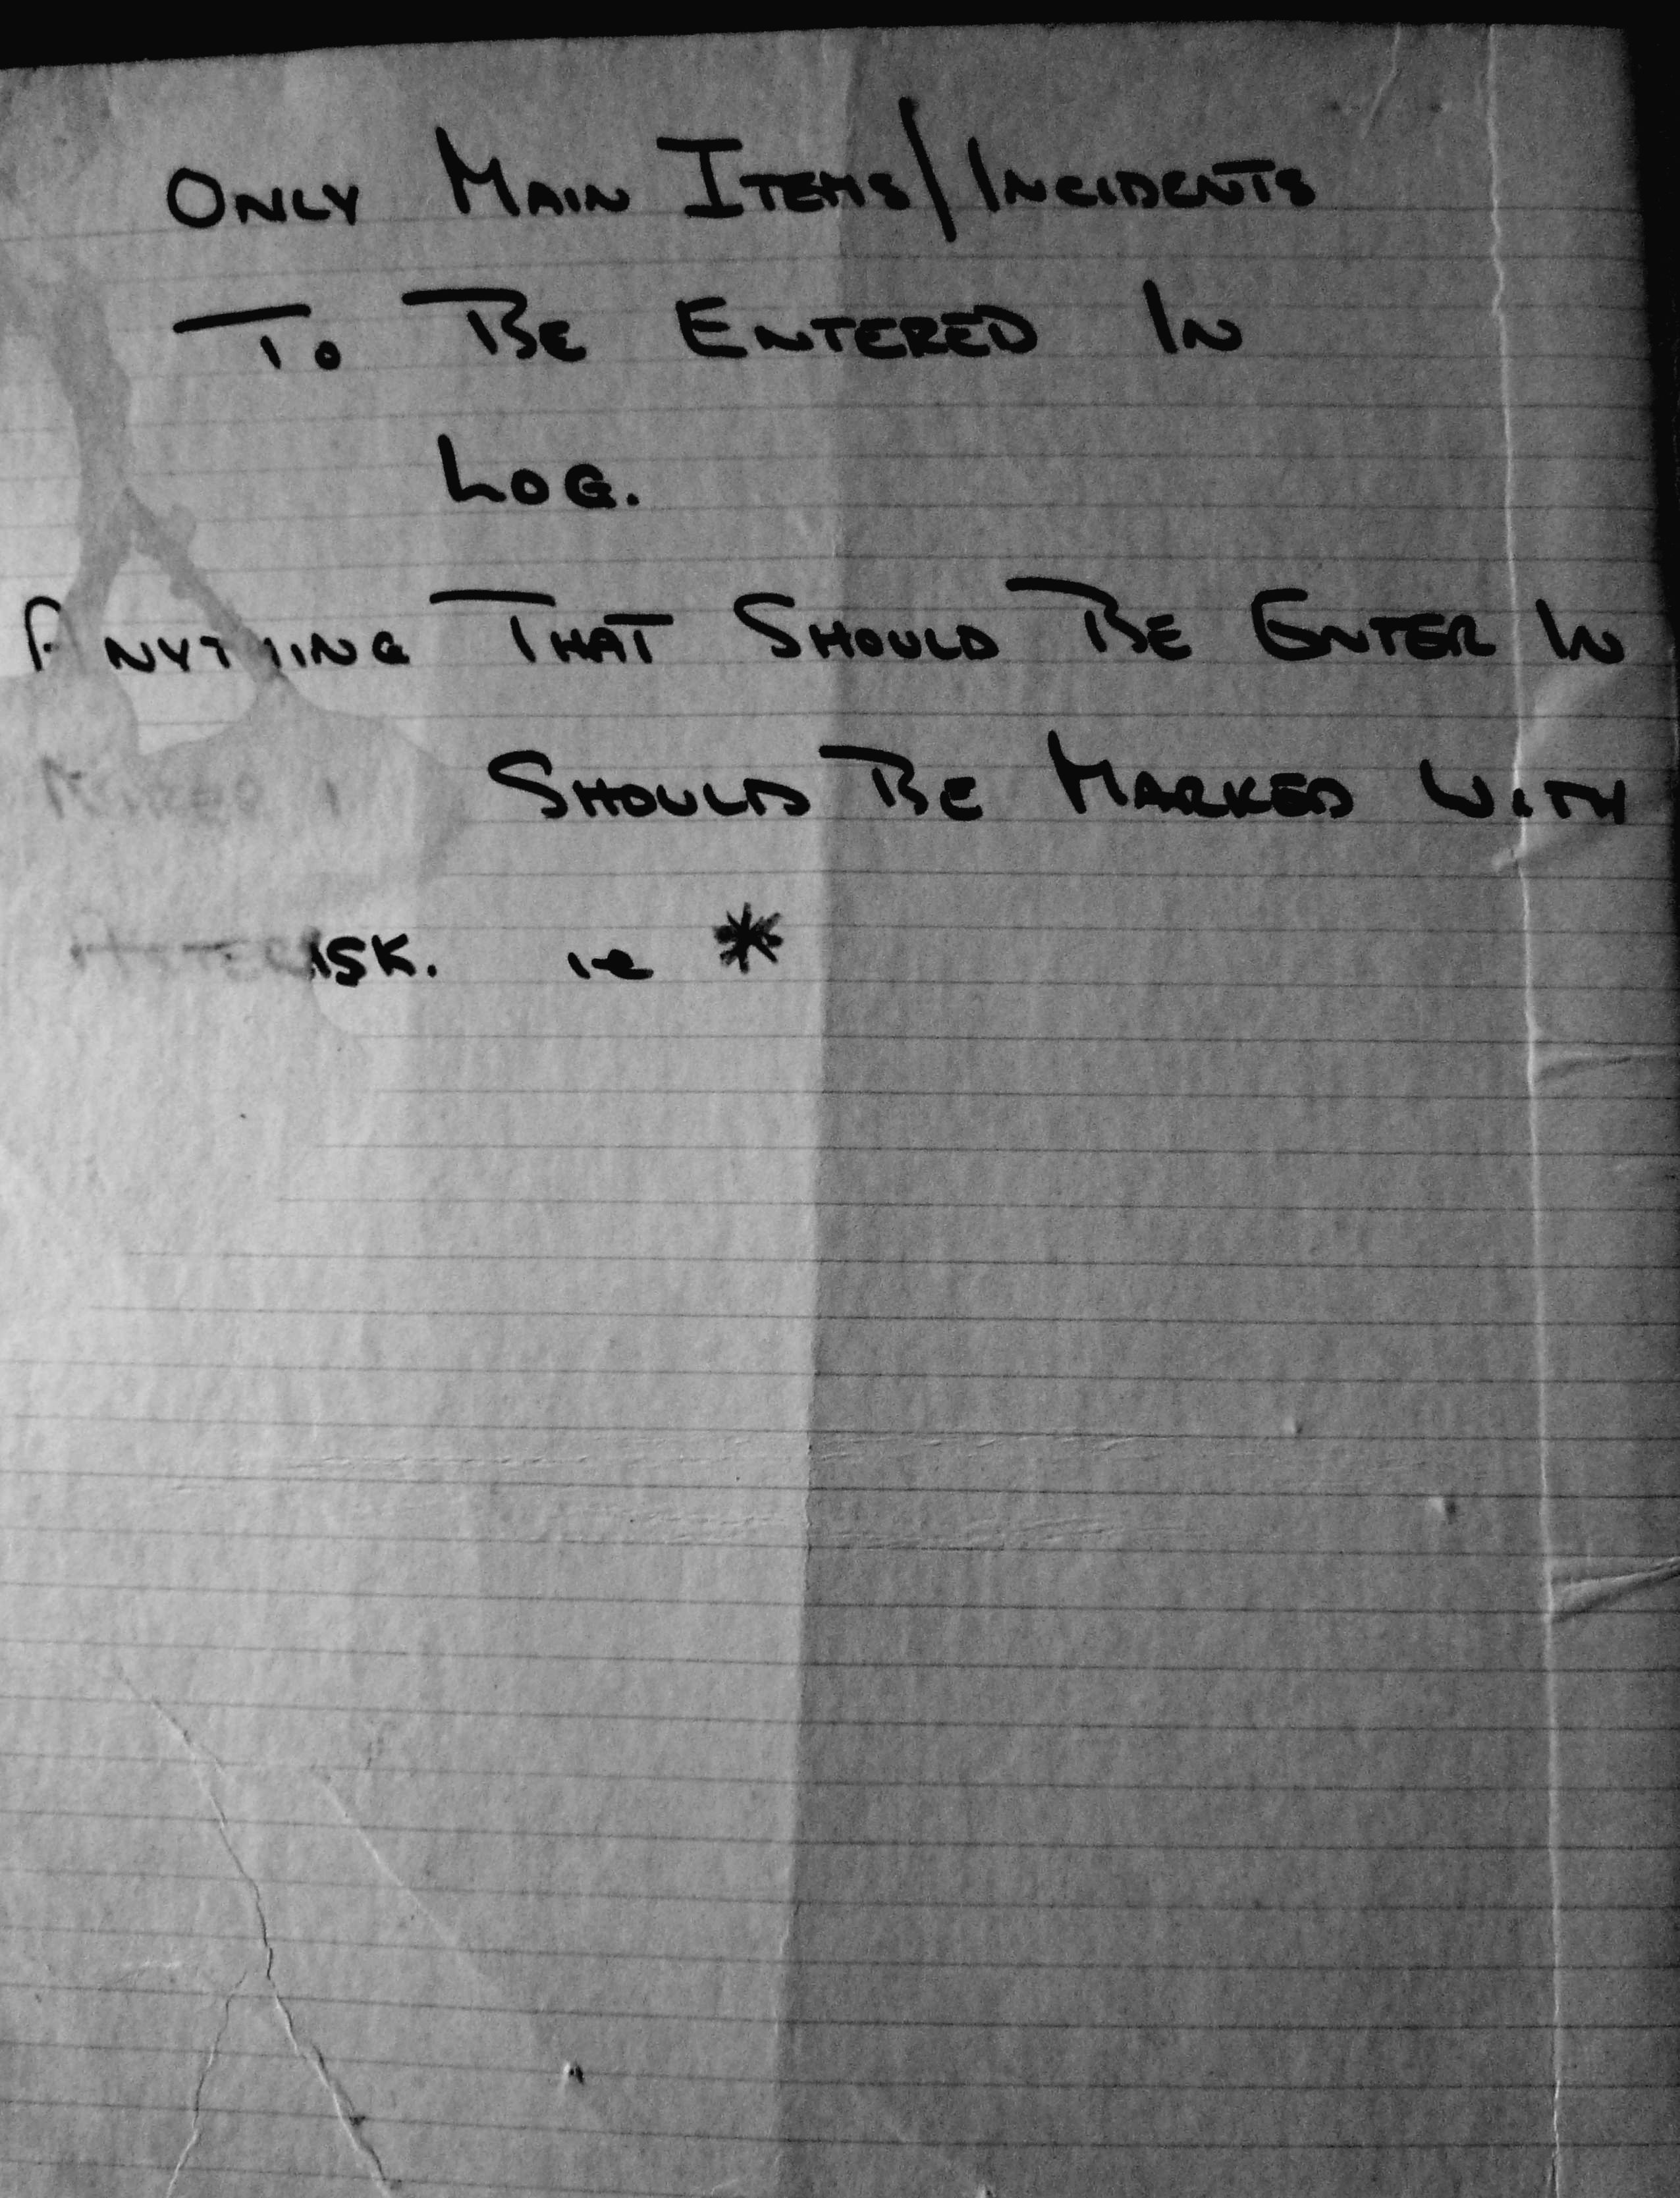 ONLY MAIN ITEMS/INCIDENTS
TO BE ENTERED IN
LOG.
ANYTHING THAT SHOULD BE ENTER IN
SHOULD BE MARKED WITH
ASTERISK. ie *